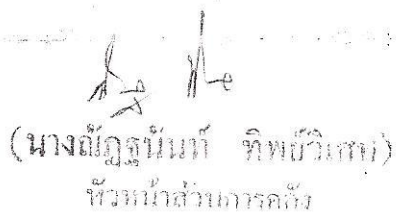 (นางณัฏฐนันท์ ทิพย์วิเศษ)
หัวหน้าส่วนการคลัง